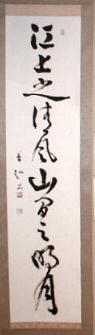 江上之清風山間之明月